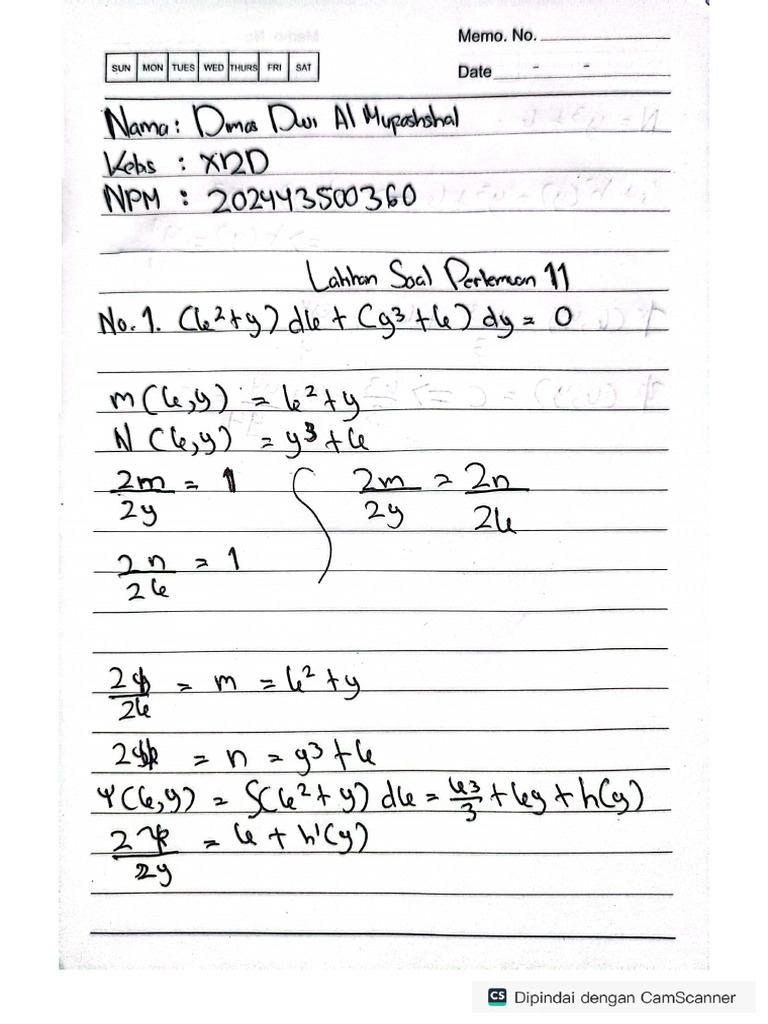 Memo. No.
SUN MON TUES WED THURS FRI SAT
Date - -
Nama : Dimas Dwi Al Mupashshal
Kelas : X12D
NPM : 202443500360
Latihan Soal Pertemuan 11
No. 1. (x²+y) dx + (y³+x) dy = 0
m(x,y) = x²+y
N(x,y) = y³+x
∂m/∂y = 1 ∂m/∂y = ∂n/∂x
∂n/∂x = 1
∂ψ/∂x = m = x²+y
∂ψ = n = y³+x
Ψ(x,y) = ∫(x²+y) dx = x³/3 + xy + h(y)
∂Ψ/∂y = x + h'(y)
CS Dipindai dengan CamScanner